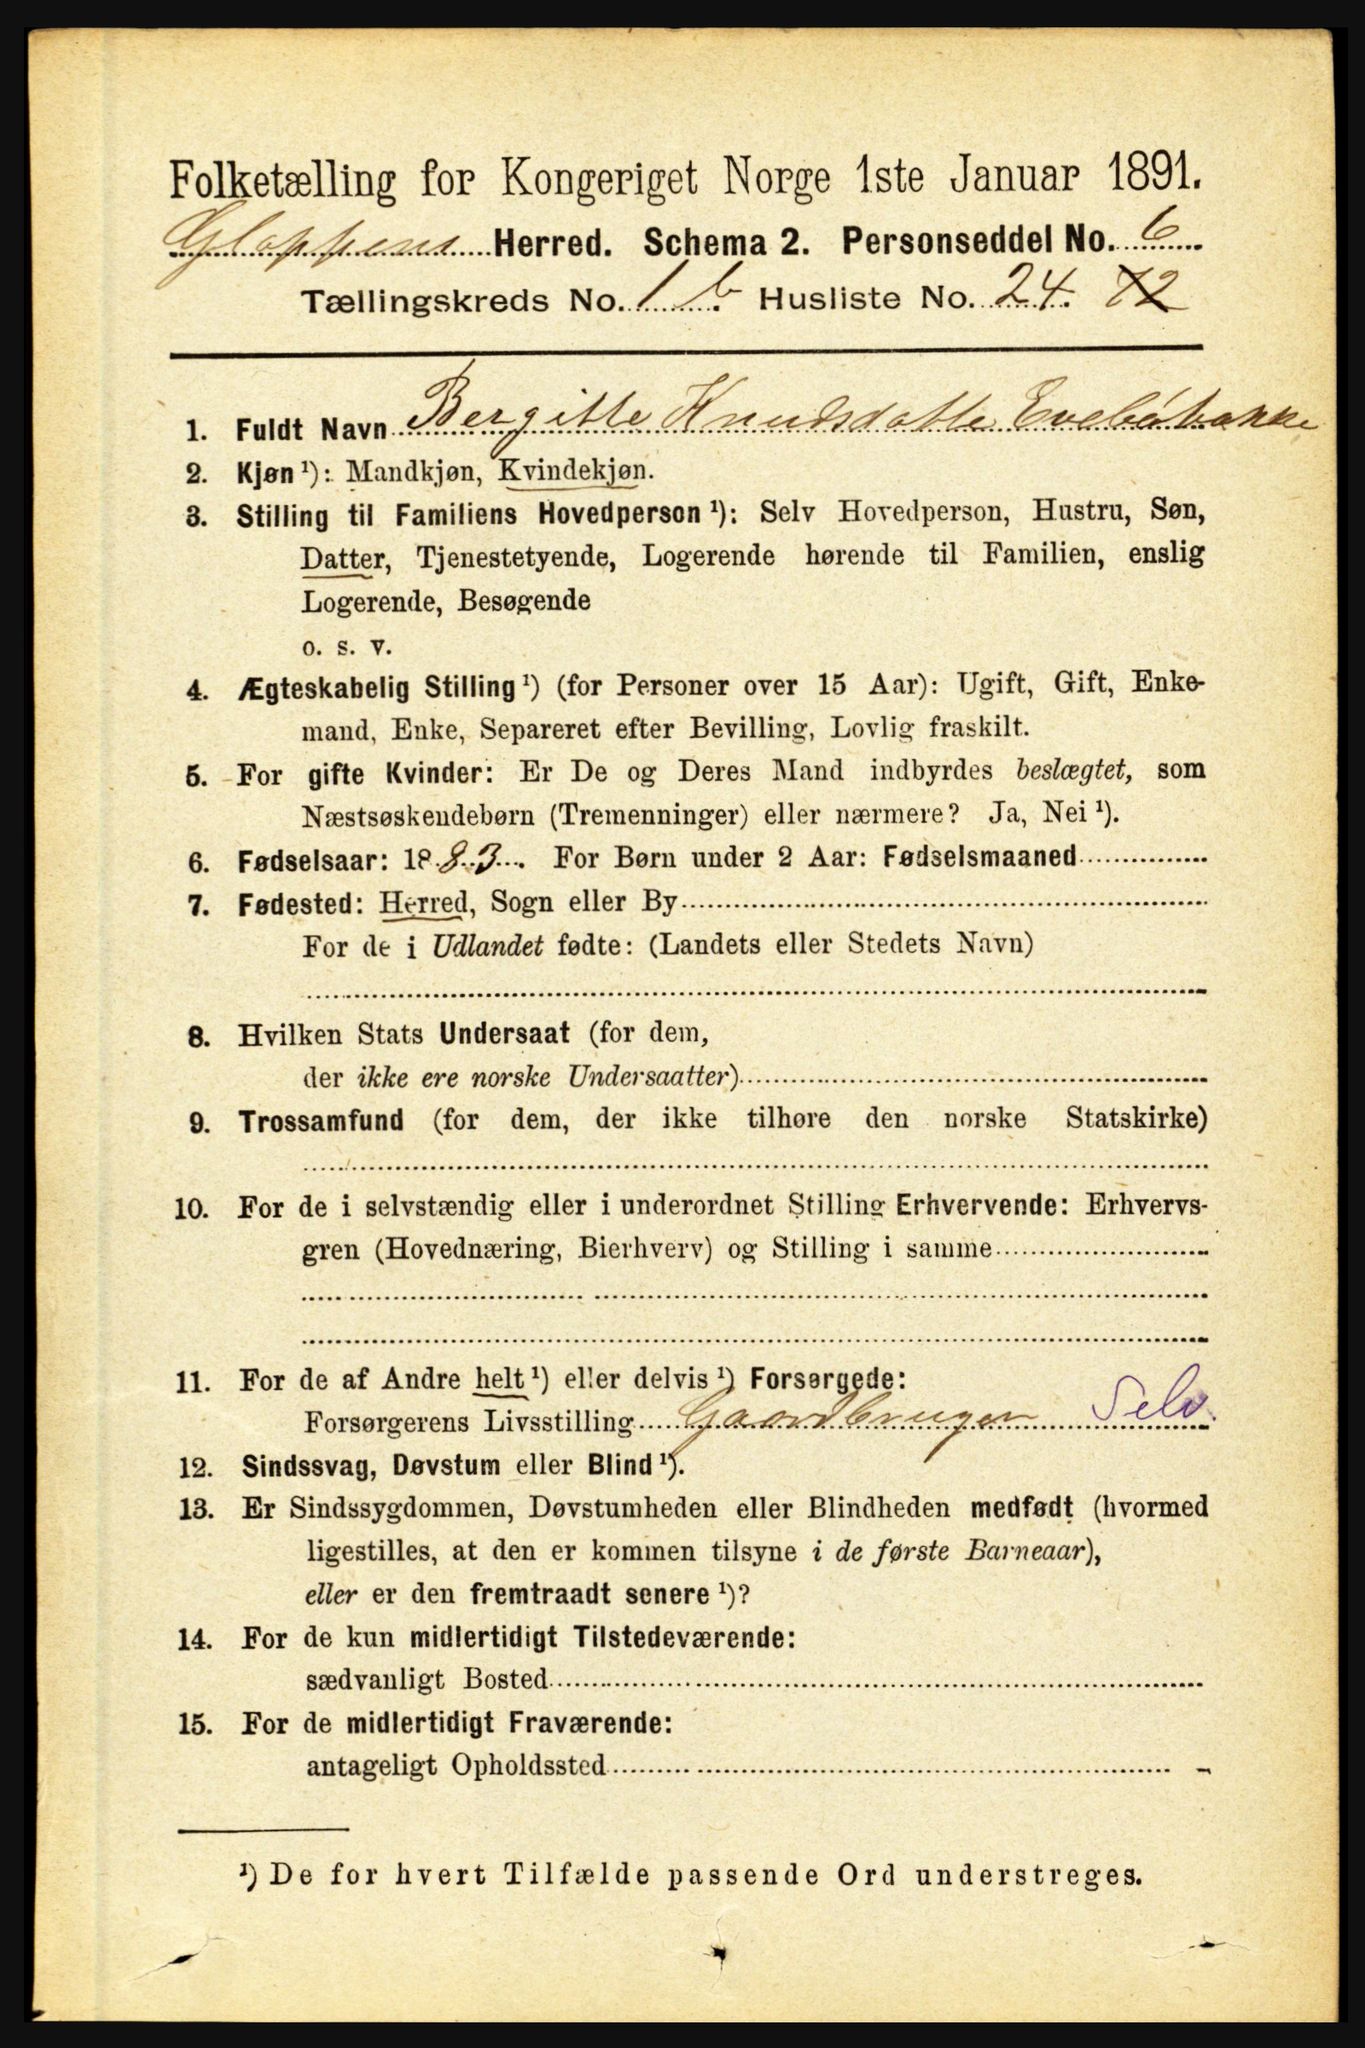 Folketælling for Kongeriget Norge 1ste Januar 1891.
Gloppens Herred. Schema 2. Personseddel No. 6
Tællingskreds No. 1 b. Husliste No. 24. 12
1. Fuldt Navn Bergitte Knudsdatte Evebøbakke
2. Kjøn ¹): Mandkjøn, Kvindekjøn.
3. Stilling til Familiens Hovedperson ¹): Selv Hovedperson, Hustru, Søn,
Datter, Tjenestetyende, Logerende hørende til Familien, enslig
Logerende, Besøgende
o. s. v.
4. Ægteskabelig Stilling ¹) (for Personer over 15 Aar): Ugift, Gift, Enke-
mand, Enke, Separeret efter Bevilling, Lovlig fraskilt.
5. For gifte Kvinder: Er De og Deres Mand indbyrdes beslægtet, som
Næstsøskendebørn (Tremenninger) eller nærmere? Ja, Nei ¹).
6. Fødselsaar: 1883. For Børn under 2 Aar: Fødselsmaaned
7. Fødested: Herred, Sogn eller By
For de i Udlandet fødte: (Landets eller Stedets Navn)
8. Hvilken Stats Undersaat (for dem,
der ikke ere norske Undersaatter)
9. Trossamfund (for dem, der ikke tilhøre den norske Statskirke)
10. For de i selvstændig eller i underordnet Stilling Erhvervende: Erhvervs-
gren (Hovednæring, Bierhverv) og Stilling i samme
11. For de af Andre helt ¹) eller delvis ¹) Forsørgede:
Forsørgerens Livsstilling Gaardbruger Selv.
12. Sindssvag, Døvstum eller Blind ¹).
13. Er Sindssygdommen, Døvstumheden eller Blindheden medfødt (hvormed
ligestilles, at den er kommen tilsyne i de første Barneaar),
eller er den fremtraadt senere ¹)?
14. For de kun midlertidigt Tilstedeværende:
sædvanligt Bosted
15. For de midlertidigt Fraværende:
antageligt Opholdssted
¹) De for hvert Tilfælde passende Ord understreges.